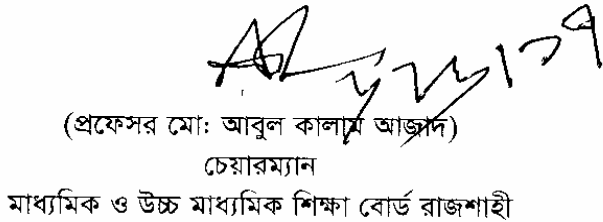 (প্রফেসর মো: আবুল কালাম আজাদ)
চেয়ারম্যান
মাধ্যমিক ও উচ্চ মাধ্যমিক শিক্ষা বোর্ড রাজশাহী